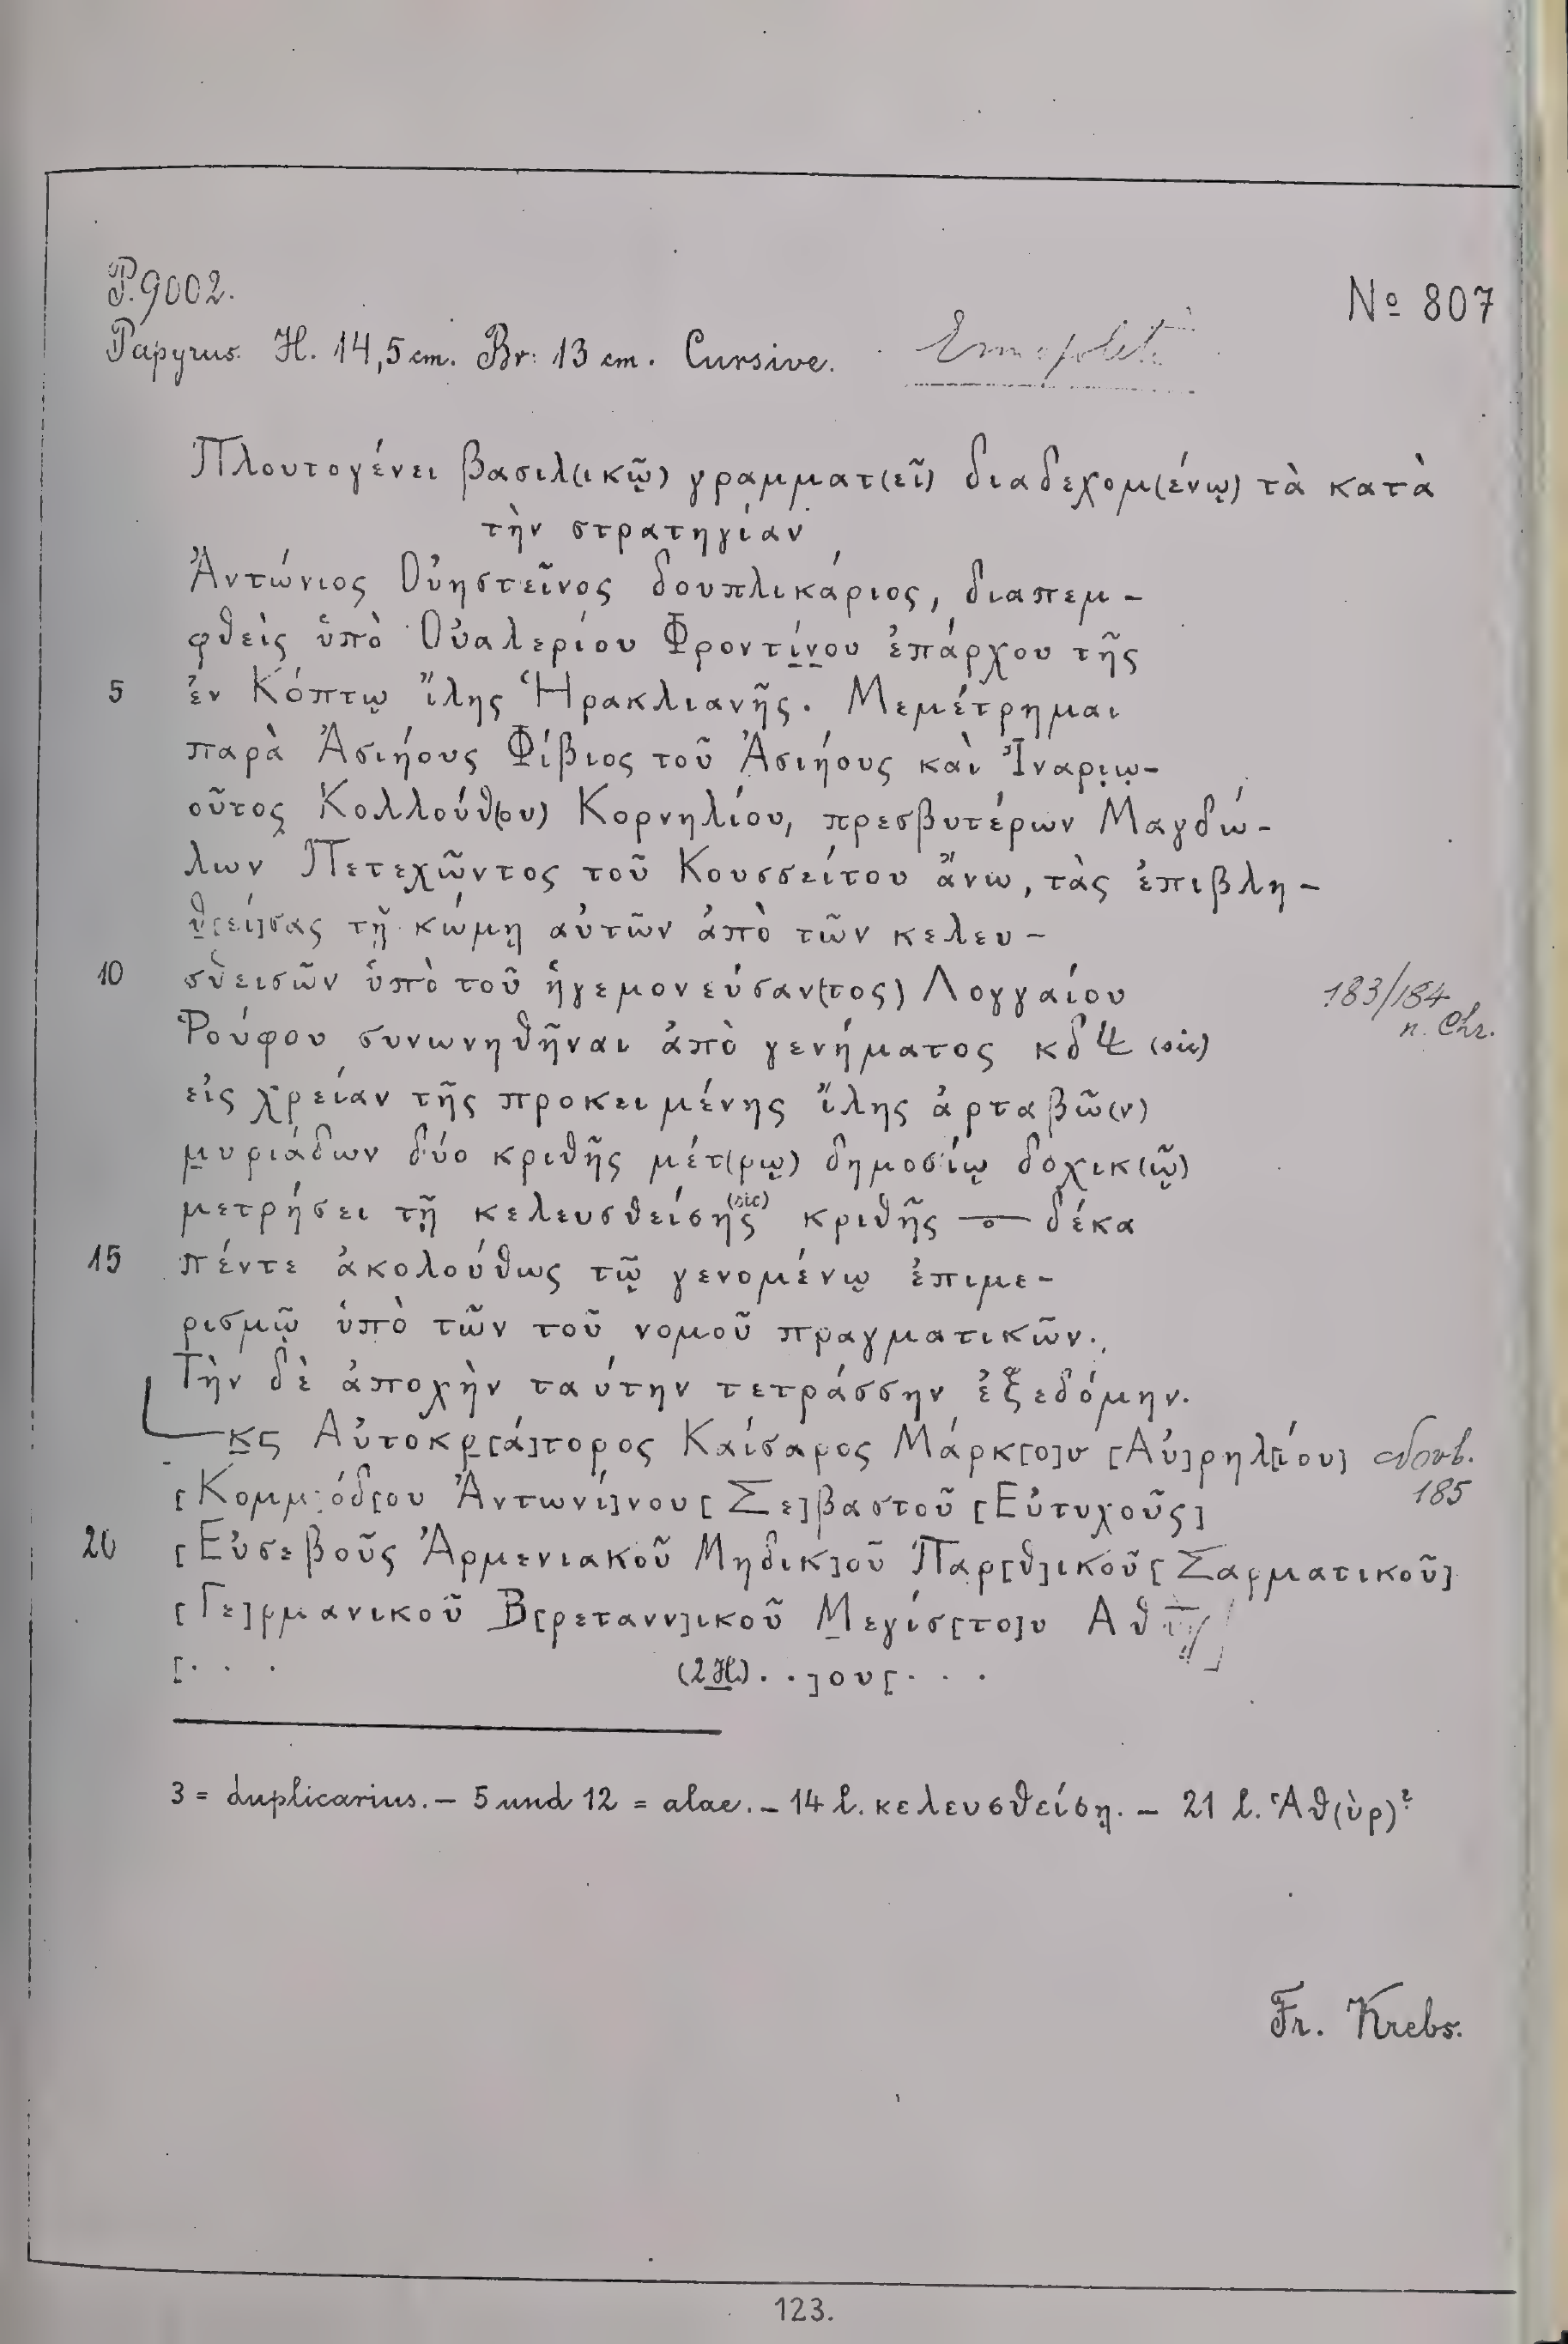 P. 9002.
No 807
Papyrus. H. 14,5 cm. Br. 13 cm. Cursive.
Πλουτογένει βασιλ(ικῷ) γραμματ(εῖ) διαδεχομ(ένῳ) τὰ κατὰ
τὴν στρατηγίαν
Ἀντώνιος Οὐηστεῖνος δουπλικάριος, διαπεμ-
φθεὶς ὑπὸ Οὐαλερίου Φροντίνου ἐπάρχου τῆς
5 ἐν Κόπτῳ ἴλης Ἡρακλιανῆς. Μεμέτρημαι
παρὰ Ἀσιήους Φίβιος τοῦ Ἀσιήους καὶ Ἰναρι̣ω̣-
οῦτος Κολλούθ(ου) Κορνηλίου, πρεσβυτέρων Μαγδώ-
λων Πετεχῶντος τοῦ Κουσσείτου ἄνω, τὰς ἐπιβλη-
θ[εί]σας τῇ κώμῃ αὐτῶν ἀπὸ τῶν κελευ-
10 σθεισῶν ὑπὸ τοῦ ἡγεμονεύσαν(τος) Λογγαίου
183/184
n. Chr.
Ῥούφου συνωνηθῆναι ἀπὸ γενήματος κδ (sic)
εἰς χρείαν τῆς προκειμένης ἴλης ἀρταβῶ(ν)
μυριάδων δύο κριθῆς μέτ(ρῳ) δημοσίῳ δοχικ(ῷ)
μετρήσει τῇ κελευσθείσης (sic) κριθῆς –o– δέκα
15 πέντε ἀκολούθως τῷ γενομένῳ ἐπιμε-
ρισμῷ ὑπὸ τῶν τοῦ νομοῦ πραγματικῶν.
Τὴν δὲ ἀποχὴν ταύτην τετράσσην ἐξεδόμην.
κϛ Αὐτοκρ[ά]τορος Καίσαρος Μάρκ[ο]υ [Αὐ]ρηλ[ίου] Novb.
185
[Κομμόδ[ου Ἀντωνί]νου [Σε]βαστοῦ [Εὐτυχοῦς]
20 [Εὐσεβοῦς Ἀρμενιακοῦ Μηδικ]οῦ Παρ[θ]ικοῦ [Σαρματικοῦ]
[Γε]ρμανικοῦ Β[ρετανν]ικοῦ Μεγίσ[το]υ Αθ
[. . . (2 H.) . . ]ου[. . .
3 = duplicarius. – 5 und 12 = alae. – 14 l. κελευσθείσῃ. – 21 l. Ἁθ(ὺρ)?
Fr. Krebs.
123.